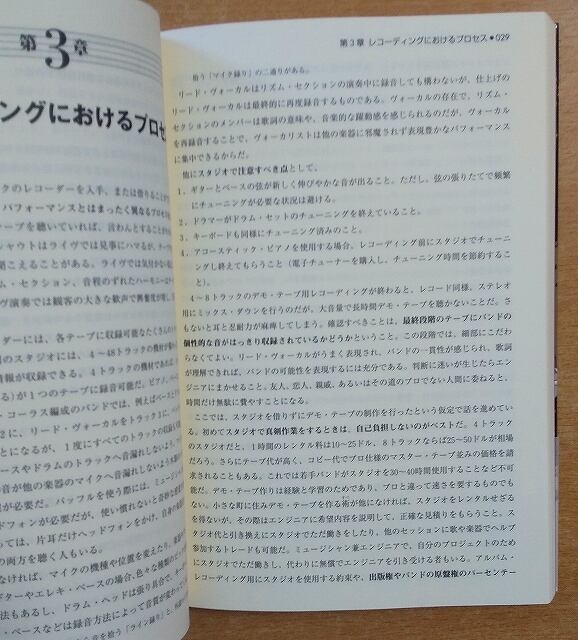 第3章
ングにおけるプロセ
クのレコーダーを入手、または借りること
パフォーマンスとはまったく異なるプロセス
ープを聴いていれば、言わんとすることが
シャウトはライヴでは見事にハマるが、テー
聞こえることがある。ライヴでは気付かない
ム・セクション、音程のずれたハーモニーは
ヴ演奏では観客の大きな歓声で興奮度が増し
ダーには、各テープに収録可能なたくさんの
別のスタジオには、4〜48トラックの機材が
情報が収録できる。4トラックの機材であれば
)が1つのテープに録音可能だ。ピアノ、
・コーラス編成のバンドでは、例えばベース
2に、リード・ヴォーカルをトラック3に、
とになるが、1度にすべてのトラックの収録
ースやドラムのトラックへ音漏れしないよう
の音が他の楽器のマイクへ音漏れしないよう
が必要だ。バッフルを使う際には、ミュージ
フォンが必要だが、使い慣れないと奇妙な
っては、片耳だけヘッドフォンをかけ、自身の
の両方を聴く人もいる。
なければ、マイクの機種や位置を変えたり、
ギターやエレキ・ベースの場合、色々な種類の
法もあるし、ドラム・ヘッドは張り具合で、
・ベースなどは録音方法によって音質が変わっ
音を拾う「ライン録り」と、
第3章 レコーディングにおけるプロセス●029
拾う「マイク録り」の二通りがある。
リード・ヴォーカルはリズム・セクションの演奏中に録音しても構わないが、仕上げの
リード・ヴォーカルは最終的に再度録音するものである。ヴォーカルの存在で、リズム・
セクションのメンバーは歌詞の意味や、音楽的な躍動感を感じられるのだが、ヴォーカル
を再録音することで、ヴォーカリストは他の楽器に邪魔されず表現豊かなパフォーマンス
に集中できるからだ。
他にスタジオで注意すべき点として、
1．ギターとベースの弦が新しく伸びやかな音が出ること。ただし、弦の張りたてで頻繁
にチューニングが必要な状況は避ける。
2．ドラマーがドラム・セットのチューニングを終えていること。
3．キーボードも同様にチューニング済みのこと。
4．アコースティック・ピアノを使用する場合、レコーディング前にスタジオでチューニ
ングし終えてもらうこと（電子チューナーを購入し、チューニング時間を節約するこ
と）。
4〜8トラックのデモ・テープ用レコーディングが終わると、レコード同様、ステレオ
用にミックス・ダウンを行うのだが、大音量で長時間デモ・テープを聴かないことだ。さ
もないと耳と忍耐力が麻痺してしまう。確認すべきことは、最終段階のテープにバンドの
個性的な音がはっきり収録されているかどうかということ。この段階では、細部にこだわ
らなくてよい。リード・ヴォーカルがうまく表現され、バンドの一貫性が感じられ、歌詞
が理解できれば、バンドの可能性を表現するには充分である。判断に迷いが生じたらエン
ジニアにまかせること。友人、恋人、親戚、あるいはその道のプロでない人間に委ねると、
時間だけ無駄に費やすことになる。
ここでは、スタジオを借りずにデモ・テープの制作を行ったという仮定で話を進めてい
る。初めてスタジオで真剣作業をするときは、自己負担しないのがベストだ。4トラック
のスタジオだと、1時間のレンタル料は10〜25ドル、8トラックならば25〜50ドルが相場
だろう。さらにテープ代が高く、コピー代でプロ仕様のマスター・テープ並みの価格を請
求されることもある。これでは若手バンドがスタジオを30〜40時間使用することなど不可
能だ。デモ・テープ作りは経験と学習のためであり、プロと違って速さを要するものでも
ない。小さな町に住みデモ・テープを作る術が他になければ、スタジオをレンタルせざる
を得ないが、その際はエンジニアに希望内容を説明して、正確な見積りをもらうこと。ス
タジオ代と引き換えにスタジオでただ働きをしたり、他のセッションに歌や楽器でヘルプ
参加するトレードも可能だ。ミュージシャン兼エンジニアで、自分のプロジェクトのため
にスタジオでただ働きし、代わりに無償でエンジニアを引き受ける者もいる。アルバム・
レコーディング用にスタジオを使用する約束や、出版権やバンドの原盤権のパーセンテー